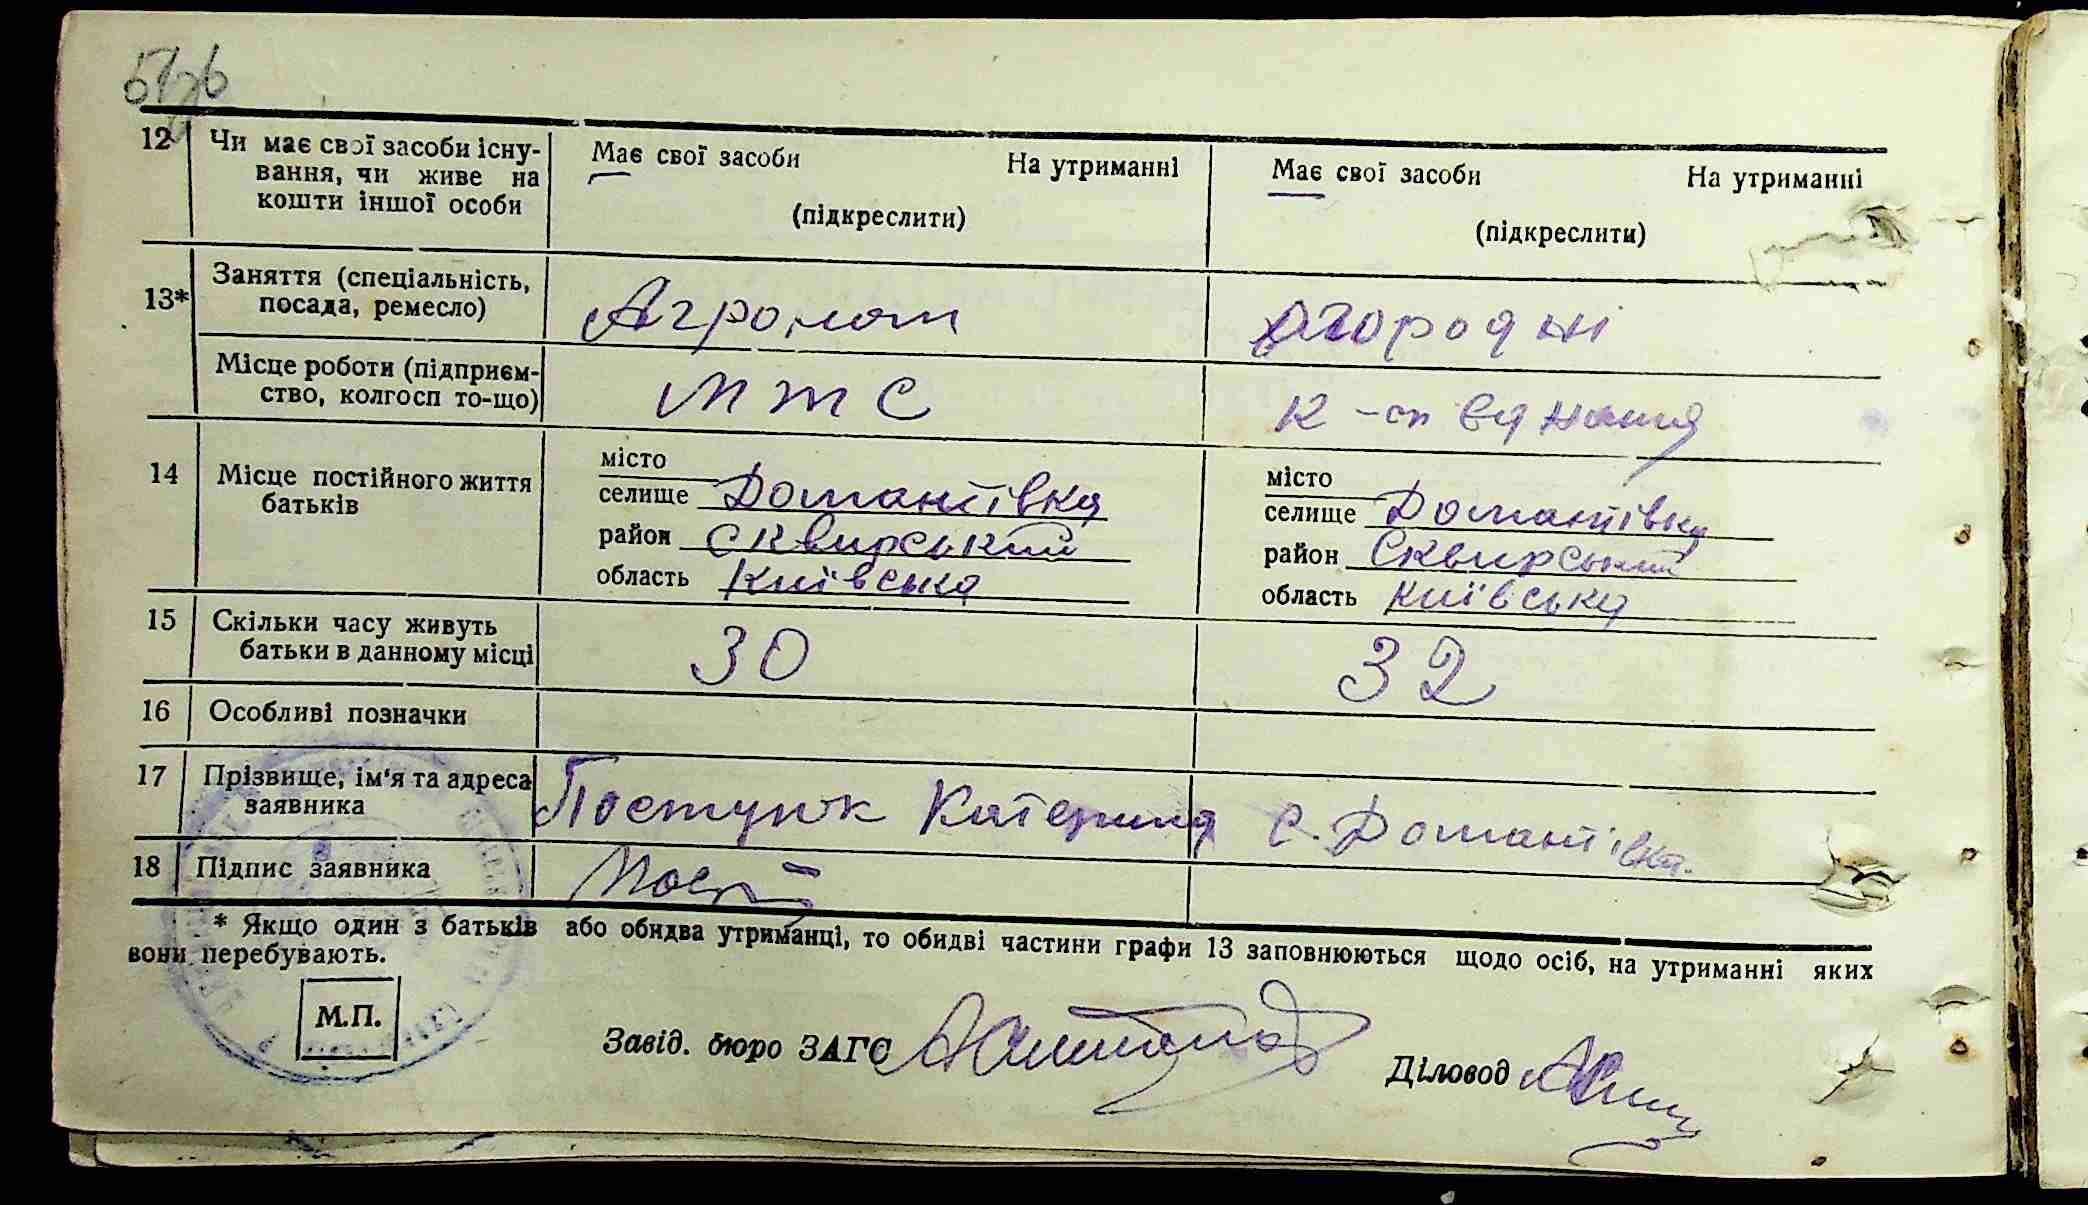 12 Чи має свої засоби існу-
вання, чи живе на
кошти іншої особи
Має свої засоби На утриманні
(підкреслити)
Має свої засоби На утриманні
(підкреслити)
13* Заняття (спеціальність,
посада, ремесло)
Агроном
огородні
Місце роботи (підприєм-
ство, колгосп то-що)
МТС
к-сп
14 Місце постійного життя
батьків
місто
селище Домантівка
район Сквирський
область Київська
місто
селище Домантівка
район Сквирський
область Київська
15 Скільки часу живуть
батьки в данному місці
30
32
16 Особливі позначки
17 Прізвище, ім'я та адреса
заявника
Катерина с. Домантівка.
18 Підпис заявника
* Якщо один з батьків або обидва утриманці, то обидві частини графи 13 заповнюються щодо осіб, на утриманні яких
вони перебувають.
М.П.
Завід. бюро ЗАГС
Діловод